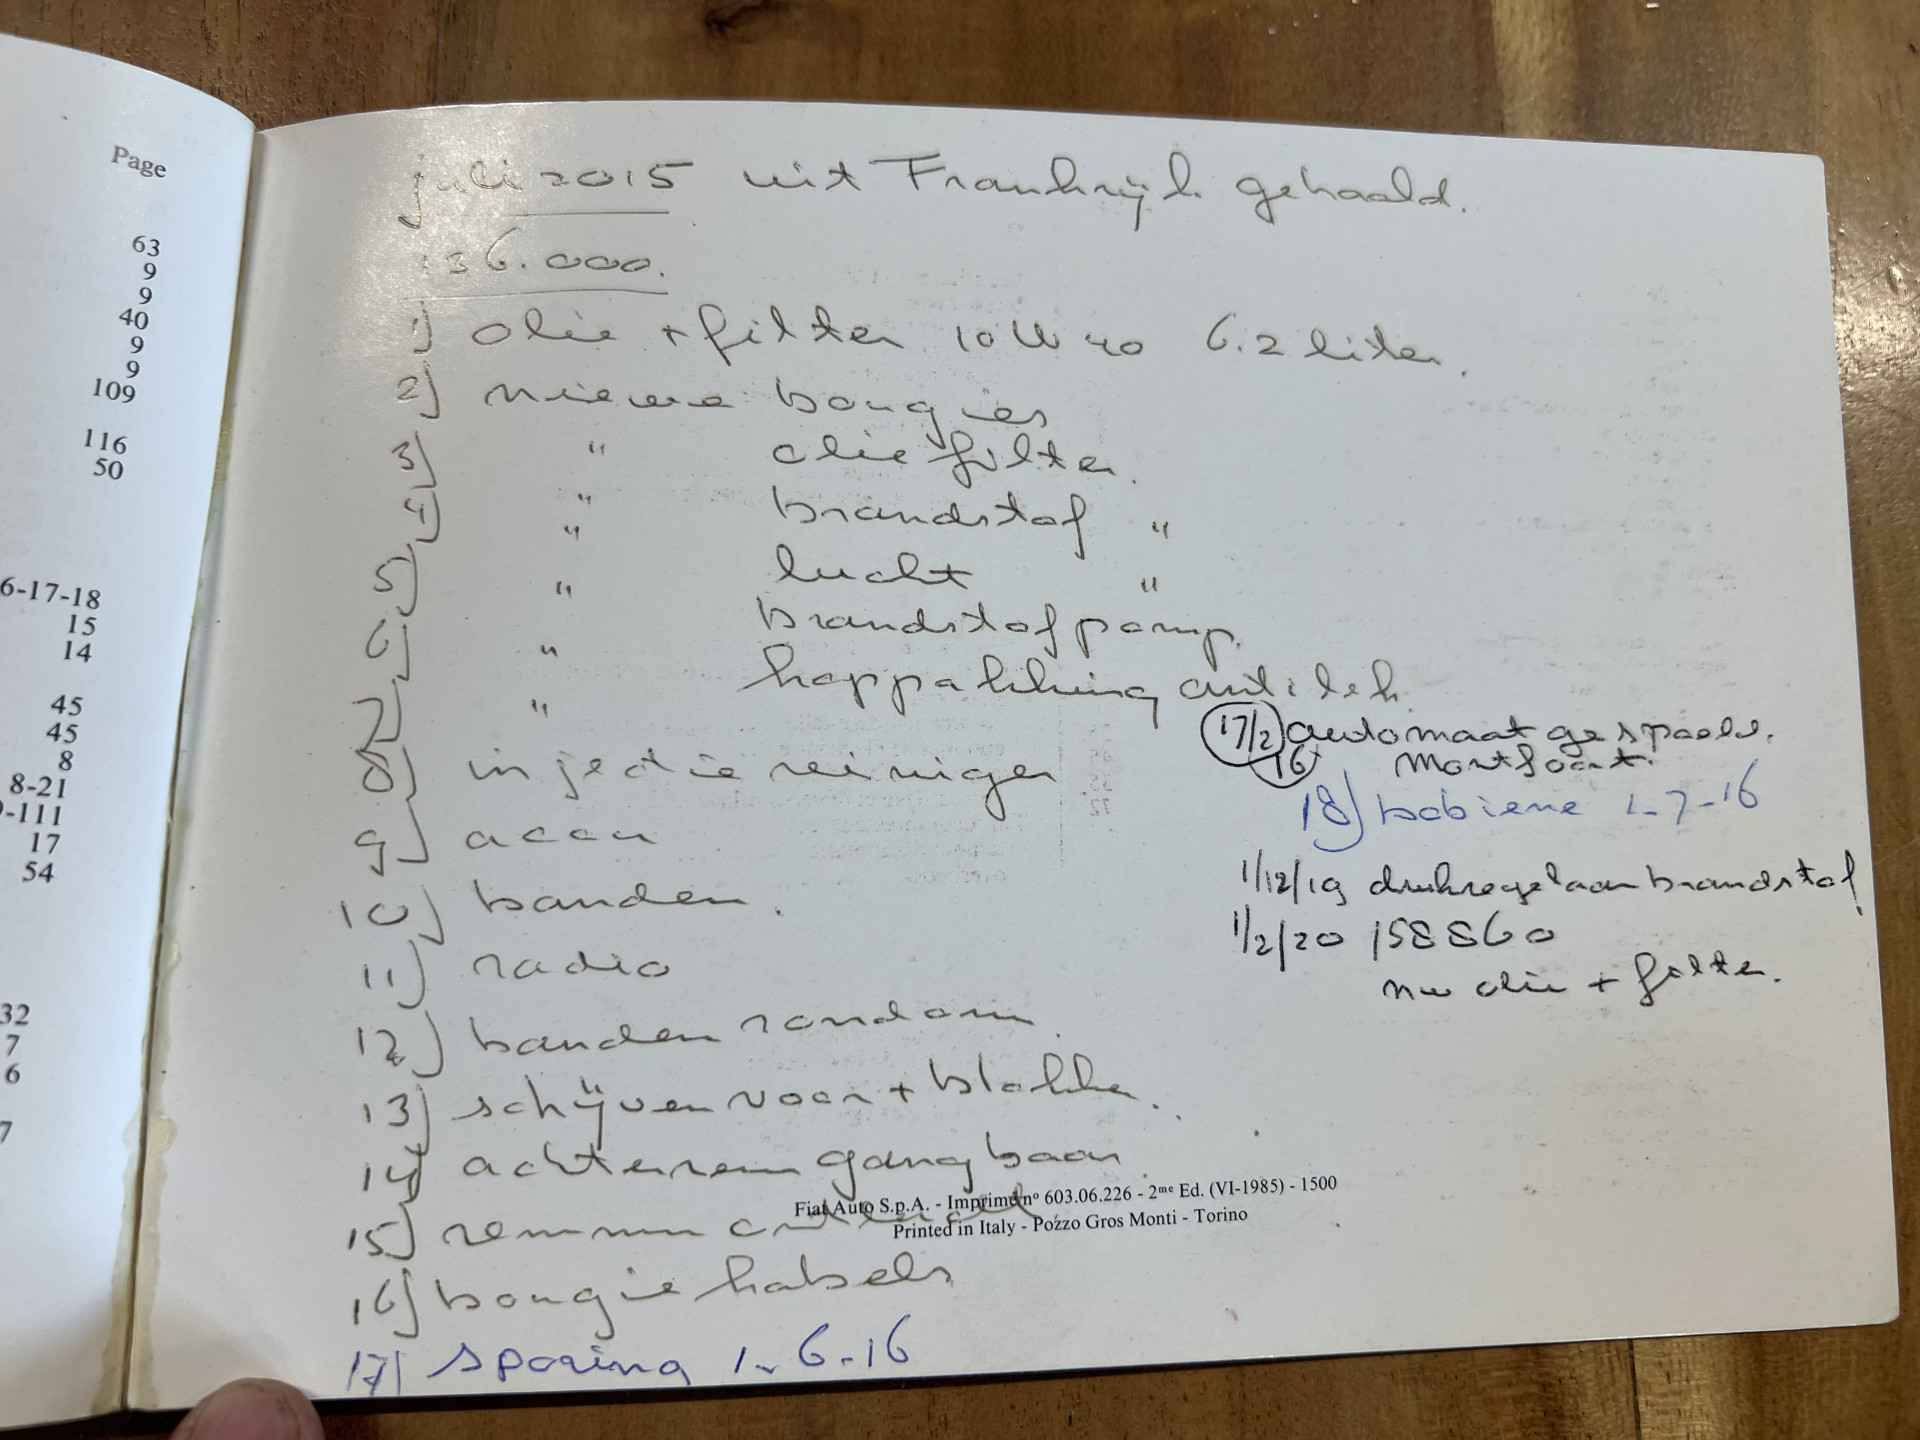 Page
63
9
9
40
9
9
109
116
50
6-17-18
15
14
45
45
8
8-21
-111
17
54
32
7
6
7
juli 2015 uit Frankrijk gehaald.
136.000.
1) olie + filter 10W40 6.2 liter.
2) nieuwe bougies
3) " olie filter.
4) " brandstof "
5) " lucht "
6) " brandstofpomp.
7) " koppakking antilek.
8) injectie reiniger
9) accu
10) banden.
11) radio
12) banden rondom.
13) schijven voor + blokken.
14) achterrem gangbaar
15) remmen
16) bougie kabels
17) sporing 1-6-16
17/2 16 automaat gespoeld.
Montfoort.
18) bobiene 1-7-16
1/12/19 drukregelaar brandstof
1/2/20 158860
nw olie + filter.
Fiat Auto S.p.A. - Imprimé nº 603.06.226 - 2me Ed. (VI-1985) - 1500
Printed in Italy - Pozzo Gros Monti - Torino